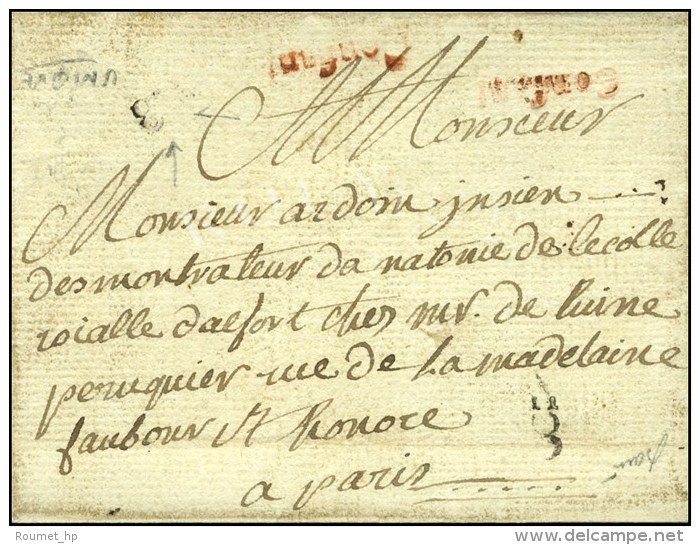 Monsieur
Monsieur ardoin insien
desmontrateur da natomie de lecolle
roialle dalfort ches mr. de Ruine
peruquier rue de la madelaine
faubour st honore
a paris
Roumet_hp
www.delcampe.net